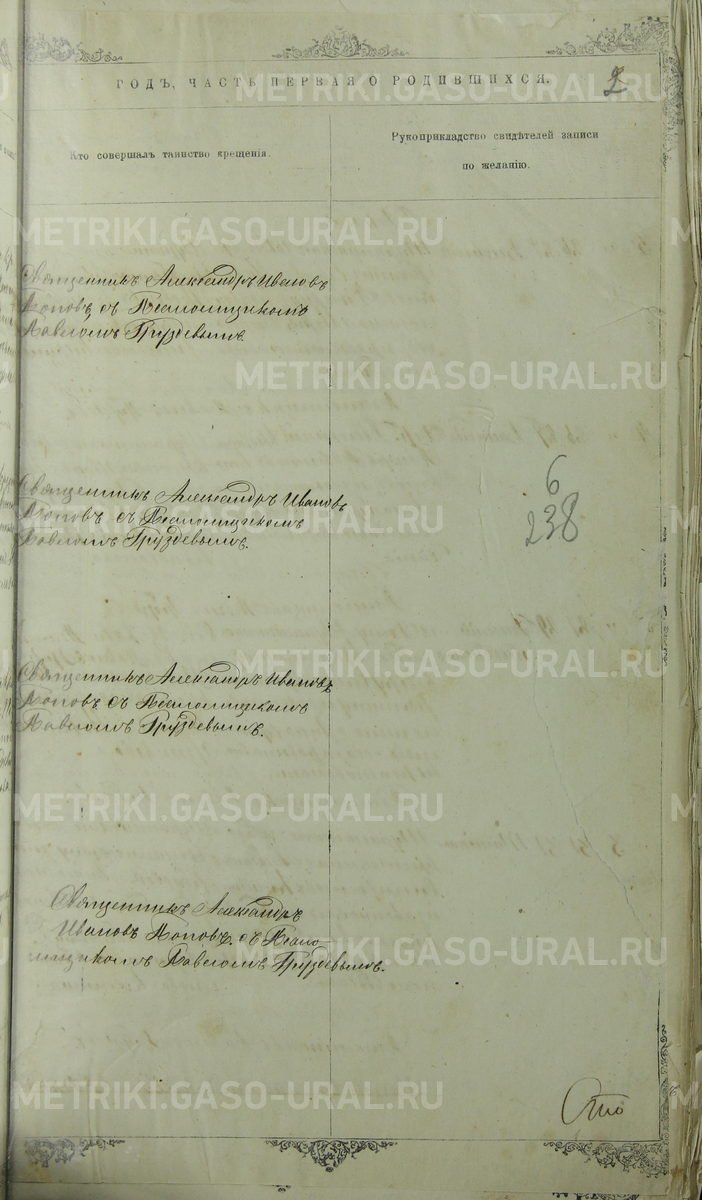 ГОДЪ, ЧАСТЬ ПЕРВАЯ О РОДИВШИХСЯ.
2
Кто совершалъ таинство крещенія.
Рукоприкладство свидѣтелей записи
по желанію.
Священникъ Александръ Ивановъ
Поповъ, съ Псаломщикомъ
Павломъ Груздевымъ.
Священникъ Александръ Ивановъ
Поповъ съ Псаломщикомъ
Павломъ Груздевымъ.
6
238
Священникъ Александръ Ивановъ
Поповъ съ Псаломщикомъ
Павломъ Груздевымъ.
Священникъ Александръ
Ивановъ Поповъ. съ Псало-
мщикомъ Павломъ Груздевымъ.
METRIKI.GASO-URAL.RU
METRIKI.GASO-URAL.RU
METRIKI.GASO-URAL.RU
METRIKI.GASO-URAL.RU
METRIKI.GASO-URAL.RU
METRIKI.GASO-URAL.RU
METRIKI.GASO-URAL.RU
METRIKI.GASO-URAL.RU